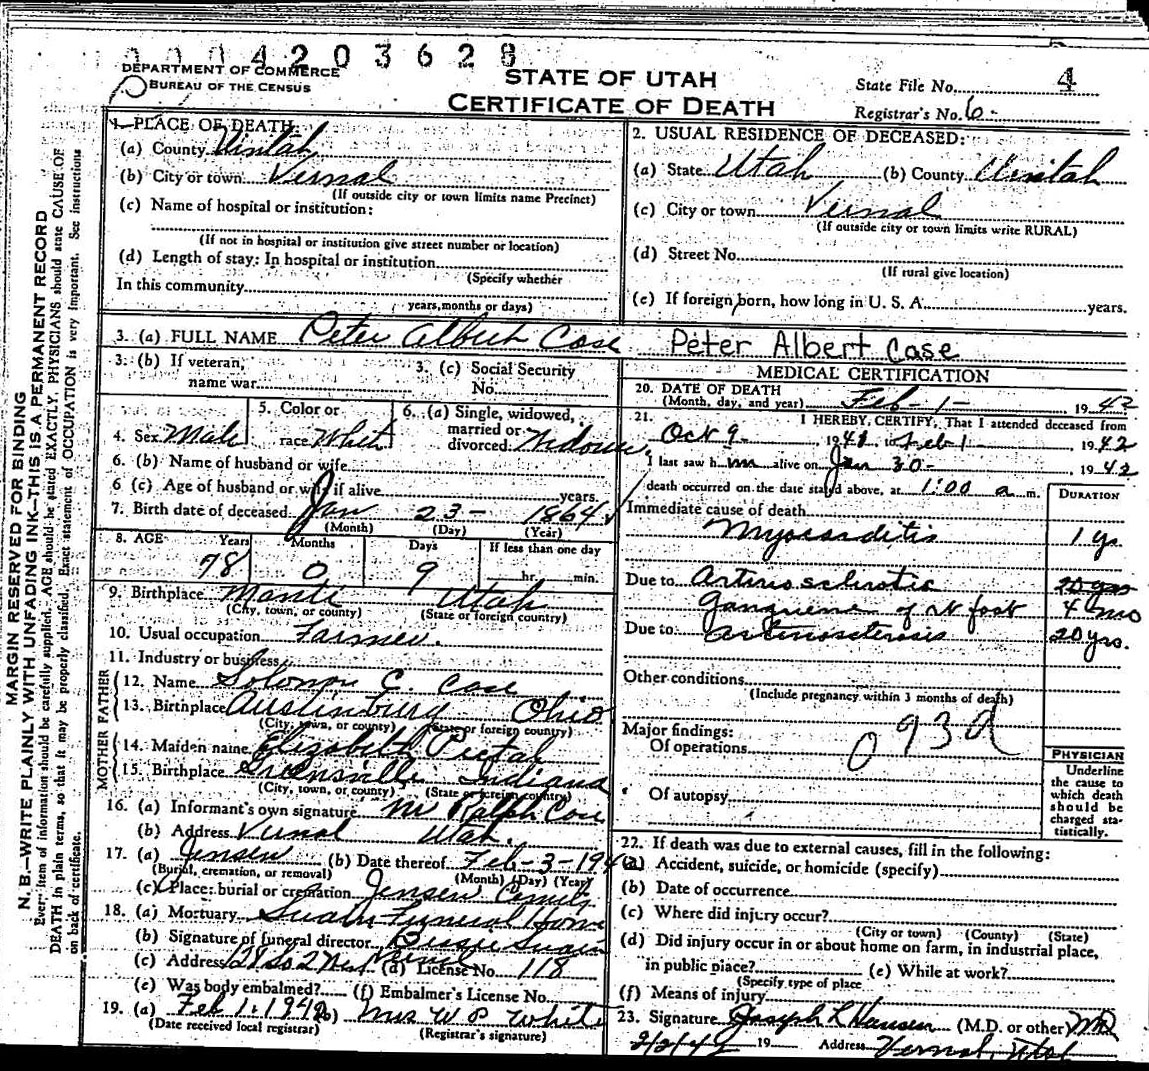 0004203628
DEPARTMENT OF COMMERCE
BUREAU OF THE CENSUS
STATE OF UTAH
CERTIFICATE OF DEATH
State File No. 4
Registrar's No. 6
MARGIN RESERVED FOR BINDING
N. B.—WRITE PLAINLY WITH UNFADING INK—THIS IS A PERMANENT RECORD
Every item of information should be carefully supplied. AGE should be stated EXACTLY. PHYSICIANS should state CAUSE OF
DEATH in plain terms, so that it may be properly classified. Exact statement of OCCUPATION is very important. See instructions
on back of certificate.
1. PLACE OF DEATH:
(a) County Uintah
(b) City or town Vernal
(If outside city or town limits name Precinct)
(c) Name of hospital or institution:
(If not in hospital or institution give street number or location)
(d) Length of stay: In hospital or institution
(Specify whether
In this community
years, months or days)
2. USUAL RESIDENCE OF DECEASED:
(a) State Utah (b) County Uintah
(c) City or town Vernal
(If outside city or town limits write RURAL)
(d) Street No.
(If rural give location)
(e) If foreign born, how long in U. S. A. years.
3. (a) FULL NAME Peter Albert Case Peter Albert Case
3. (b) If veteran, name war
3. (c) Social Security No.
4. Sex Male
5. Color or race White
6. (a) Single, widowed, married or divorced:
6. (b) Name of husband or wife
6 (c) Age of husband or wife if alive years.
7. Birth date of deceased Jan 23- 1864
(Month) (Day) (Year)
8. AGE Years Months Days If less than one day
78 0 9 hr. min.
9. Birthplace Manti Utah
(City, town, or county) (State or foreign country)
10. Usual occupation Farmer.
11. Industry or business
FATHER
12. Name Solomon C. Case
13. Birthplace Austinburg Ohio
(City, town, or county) (State or foreign country)
MOTHER
14. Maiden name Elizabeth
15. Birthplace Greensville Indiana
(City, town, or county) (State or foreign country)
16. (a) Informant's own signature Mr Ralph Case
(b) Address Vernal Utah.
17. (a) Jensen (b) Date thereof Feb-3-194
(Burial, cremation, or removal) (Month) (Day) (Year)
(c) Place: burial or cremation Jensen
18. (a) Mortuary Swain Funeral Home
(b) Signature of funeral director Swain
(c) Address 128 So 2 West Vernal (d) License No. 118
(e) Was body embalmed? (f) Embalmer's License No.
19. (a) Feb 1. 1942 (b) Mrs W P White
(Date received local registrar) (Registrar's signature)
MEDICAL CERTIFICATION
20. DATE OF DEATH
(Month, day, and year) Feb-1- 1942
21. I HEREBY, CERTIFY, That I attended deceased from
Oct 9 1941 to Feb 1 1942
I last saw him alive on Jan 30- , 1942
death occurred on the date stated above, at 1:00 a m.
DURATION
Immediate cause of death
Myocarditis 1 yr
Due to Arteriosclerotic 20 yrs
gangrene of rt foot 4 mo
Due to Arteriosclerosis 20 yrs.
Other conditions
(Include pregnancy within 3 months of death)
Major findings:
Of operations
093d
Of autopsy
PHYSICIAN
Underline
the cause to
which death
should be
charged sta-
tistically.
22. If death was due to external causes, fill in the following:
(a) Accident, suicide, or homicide (specify)
(b) Date of occurrence
(c) Where did injury occur?
(City or town) (County) (State)
(d) Did injury occur in or about home on farm, in industrial place,
in public place? (e) While at work?
(Specify type of place
(f) Means of injury
23. Signature Joseph L Hansen (M.D. or other) MD
2/2/42 19 Address Vernal, Utah